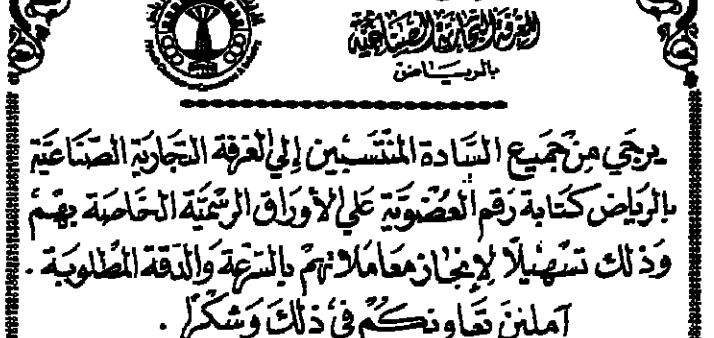 الغرفة التجارية الصناعية
بالرياض
يرجى من جميع السادة المنتسبين إلى الغرفة التجارية الصناعية
بالرياض كتابة رقم العضوية على الأوراق الرسمية الخاصة بهم
وذلك تسهيلاً لإنجاز معاملاتهم بالسرعة والدقة المطلوبة .
آملين تعاونكم في ذلك وشكراً .